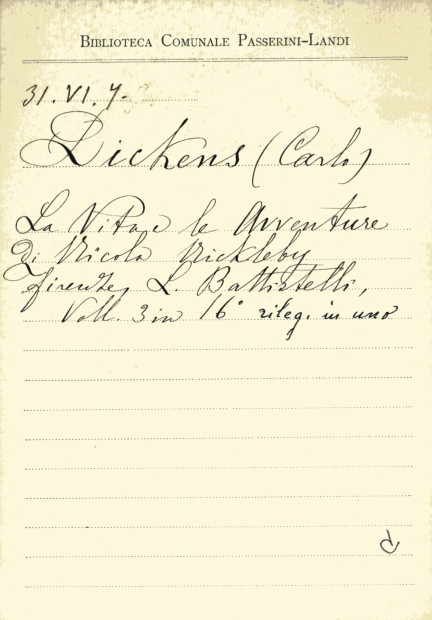 BIBLIOTECA COMUNALE PASSERINI-LANDI
31. VI. 7.
Dickens (Carlo)
La Vita e le Avventure
di Nicola Nickleby
firenze, L. Battistelli,
Voll. 3 in 16° rileg. in uno